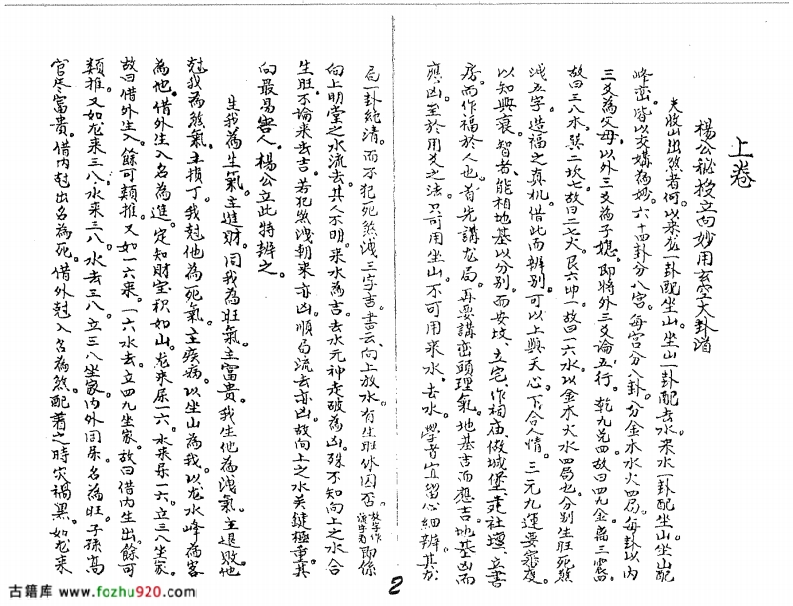 上卷
楊公秘授立向妙用玄空大卦消
夫收山出煞者何以來龙一卦配坐山坐山一卦配去水來水一卦配坐山坐山配
峰峦皆以交媾為妙六十四卦分八宮每宮分八卦八分金木水火四局每卦以内
三爻為父母以外三爻為子媳即將外三爻論五行乾九兑四故曰四九金离三震
故曰三八木巽二坎七故曰二七火艮六坤一故曰一六水以金木火水四局也分别生旺死煞
洩五字造福之真机借此而辨别可以上興天心下合人情三元九運要
以知興衰智者能相地基以分别而安坟立宅作相庙做城堡社壇立書
房而作福於人也首先講龙局再要講峦頭理氣地基吉而應吉地基凶而
應凶至於用爻之法只可用坐山不可用來水去水學者宜留心細辨其於
局一卦純清而不犯死煞洩三字吉書云向上放水有生旺休囚否即係
向上明堂之水流去其人不明來水為吉去水元神走破為凶殊不知向上之水合
生旺不論來去吉若犯煞洩朝來亦凶順局流去亦凶故向上之水关鍵極重其
向最易害人楊公立此特辨之
生我為生氣主進財同我為旺氣主富贵我生他為洩氣主退敗他
尅我為煞氣主損丁我尅他為死氣主疾病以坐山為我以龙水峰為客
為他借外生入名為進定知財宝积如山龙來屬一六水來屬一六立三八坐家
故曰借外生入餘可類推又如一六來一六水去立四九坐家故曰借内生出餘可
類推又如龙來三八水來三八水去三八立三八坐家内外同屬名為旺子孫高
官尽富贵借内尅出名為死借外尅入名為煞配著之時灾禍黑如龙來
2
古籍库 www.fozhu920.com